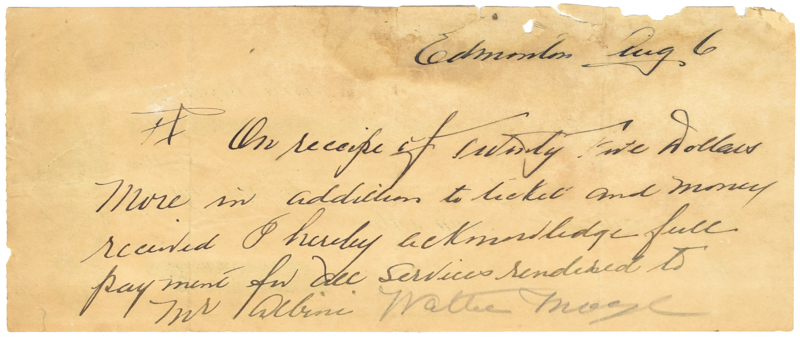 Edmonton Aug 6
On receipe of Twenty Five Dollars
More in addition to ticket and money
received I hereby acknowledge full
payment for all services rendered to
Mr Albini Walter